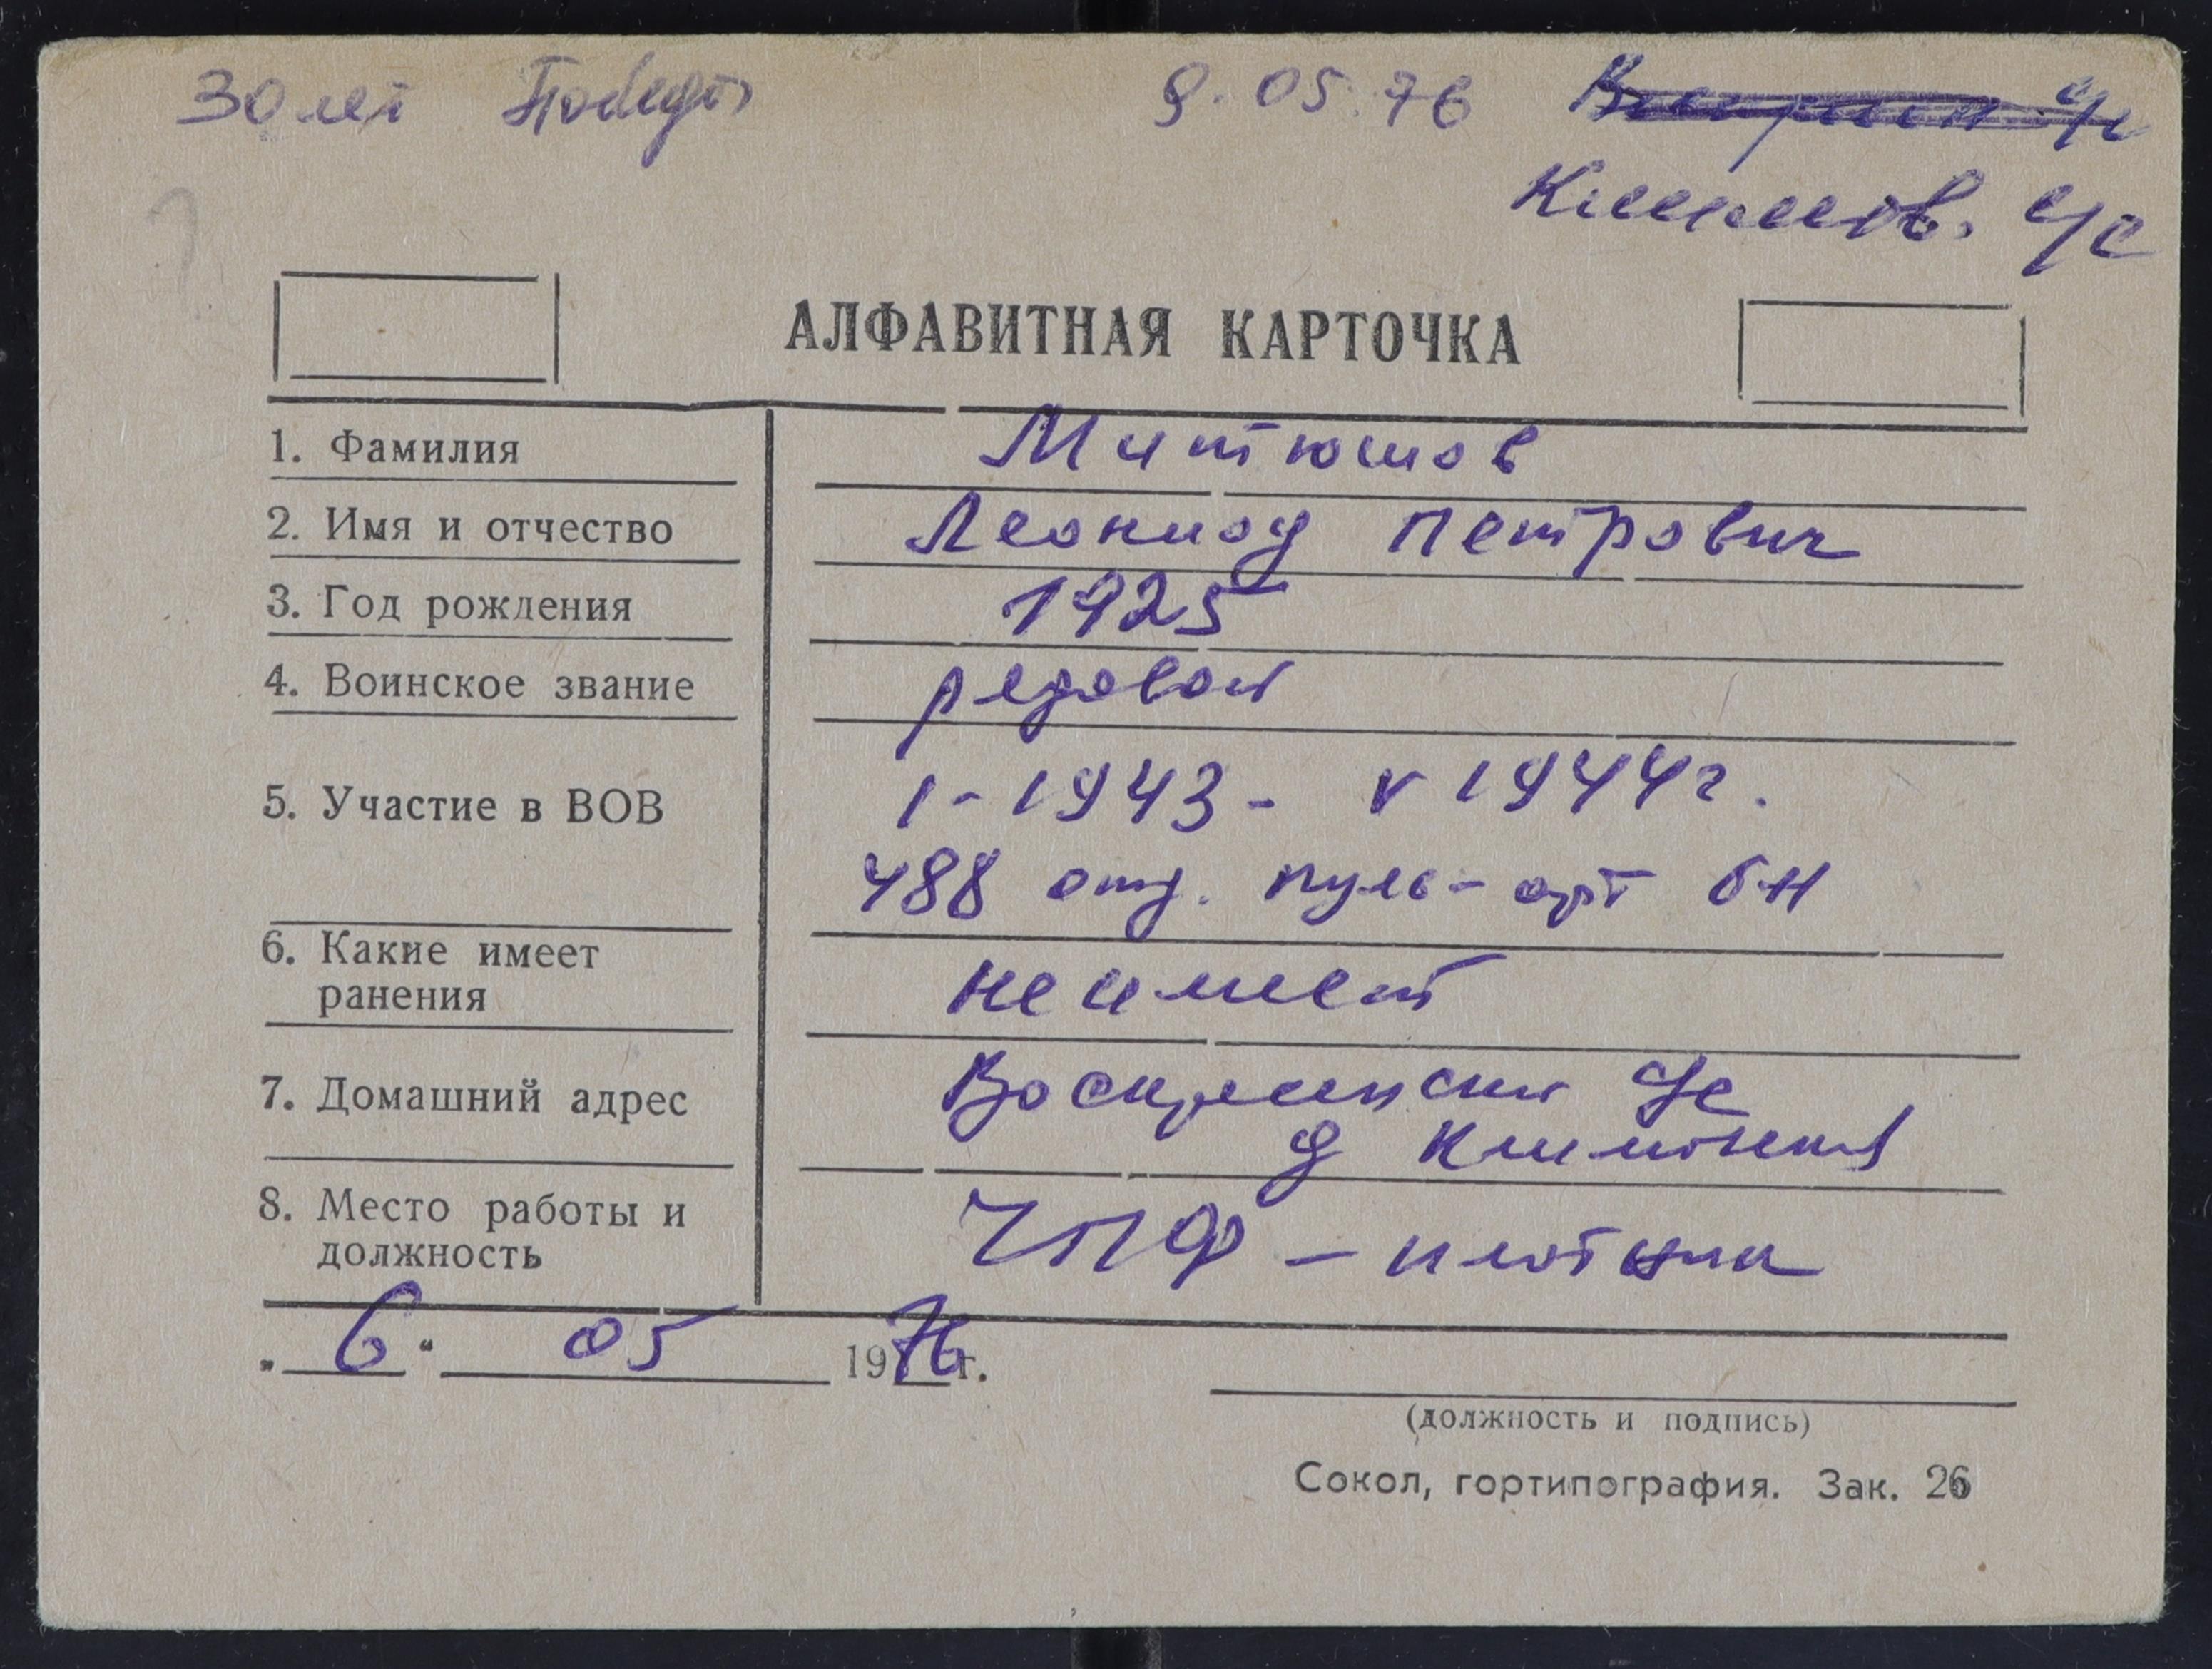 30 лет Победы 9.05.76
Климов. с/с
АЛФАВИТНАЯ КАРТОЧКА
1. Фамилия Митюшов
2. Имя и отчество Леонид Петрович
3. Год рождения 1925
4. Воинское звание редовой
5. Участие в ВОВ 1-1943- V 1944г.
488 отд. пуль-арт б-н
6. Какие имеет
ранения не имеет
7. Домашний адрес с/с
д
8. Место работы и
должность ЧПФ - плотник
„ 6 “ 05 1976 г.
(должность и подпись)
Сокол, гортипография. Зак. 26